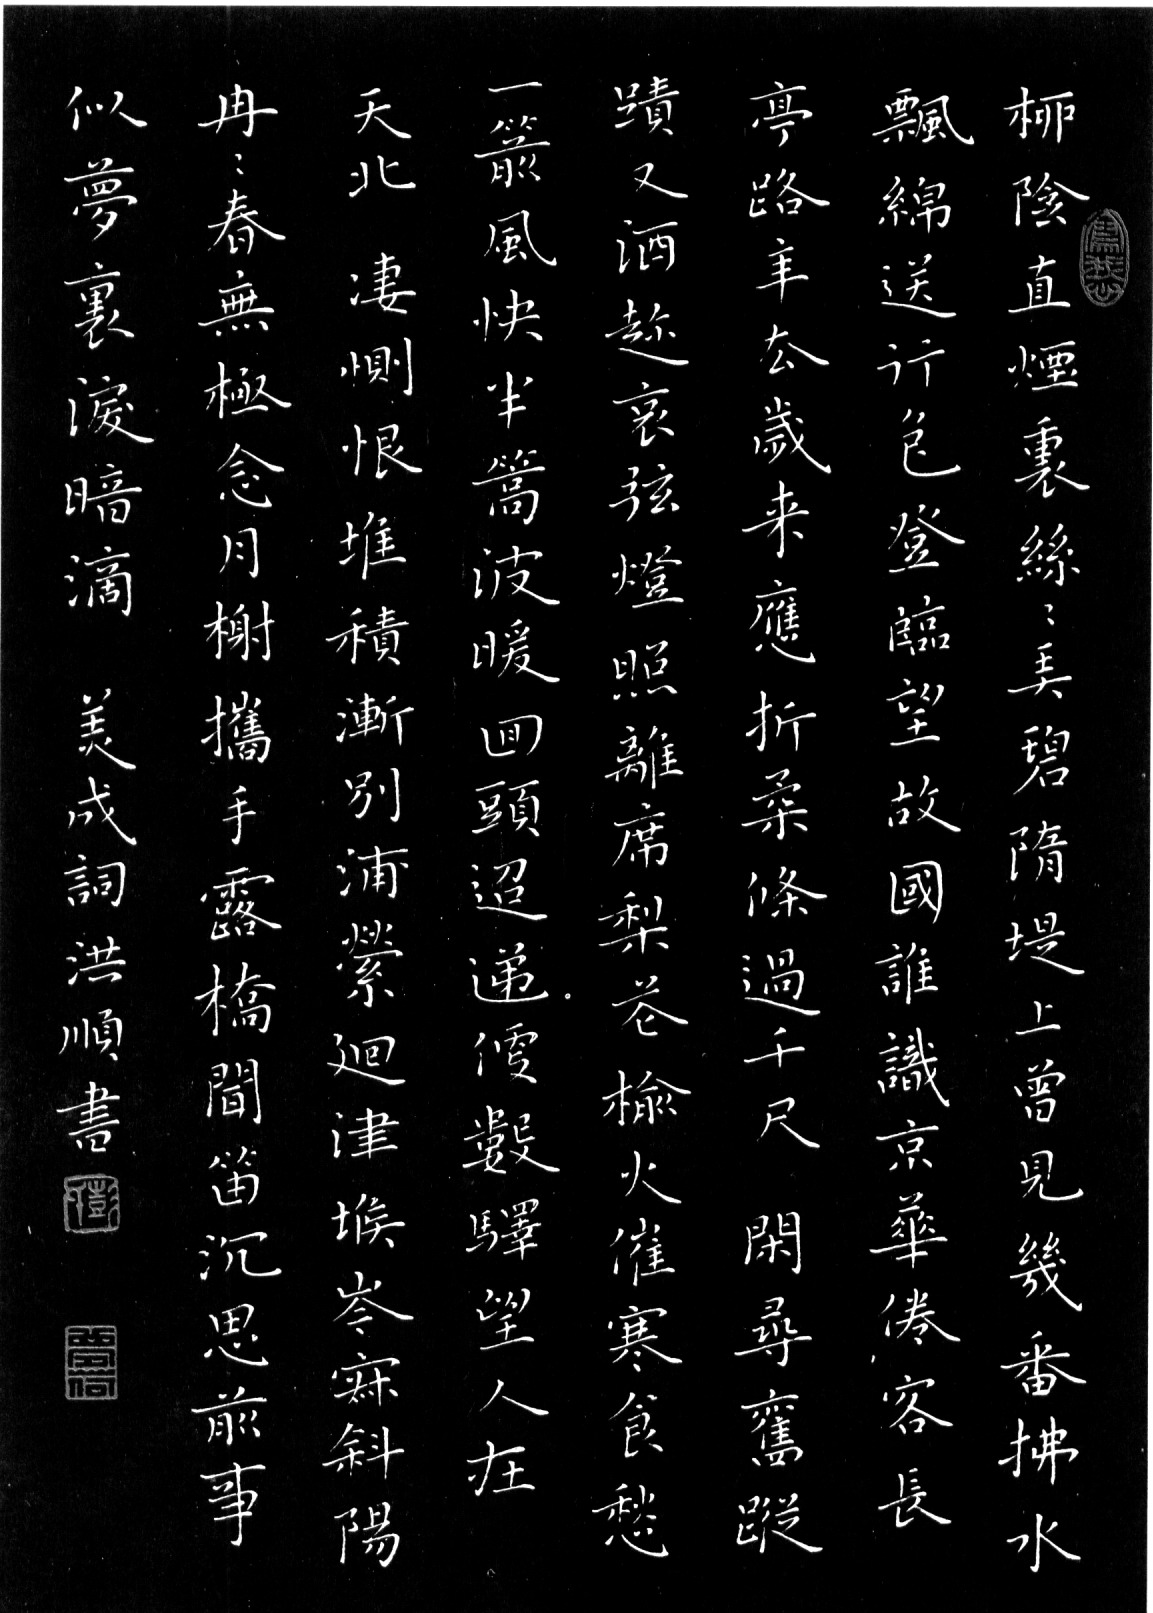 柳陰直煙裏絲〻弄碧隋堤上曾見幾番拂水
飄綿送行色登臨望故國誰識京華倦客長
亭路年去歲来應折柔條過千尺 閑尋舊蹤
蹟又酒趂哀弦燈照離席梨花榆火催寒食愁
一箭風快半篙波暖回頭迢遞便數驛望人在
天北 凄惻恨堆積漸別浦縈迴津堠岑寂斜陽
冉〻春無極念月榭攜手露橋聞笛沉思前事
似夢裏淚暗滴 美成詞洪順書